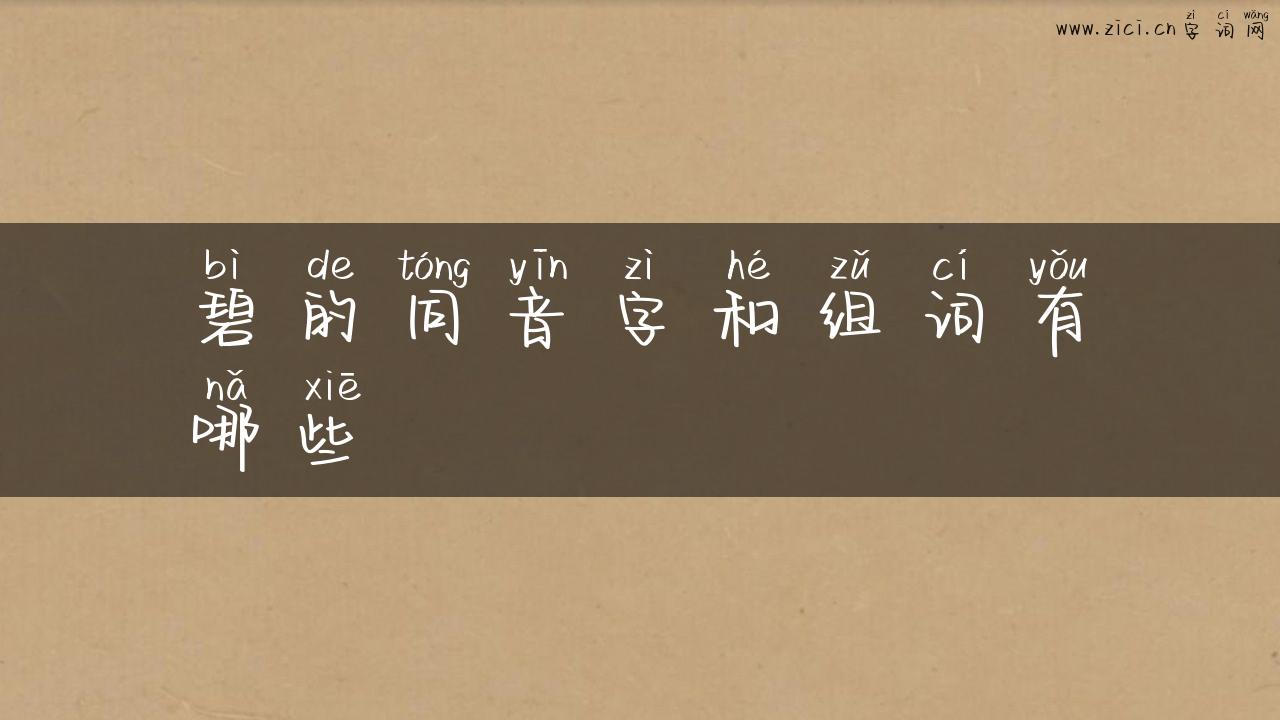 zì cí wǎng
www.zici.cn 字 词 网
bì de tóng yīn zì hé zǔ cí yǒu
碧 的 同 音 字 和 组 词 有
nǎ xiē
哪 些